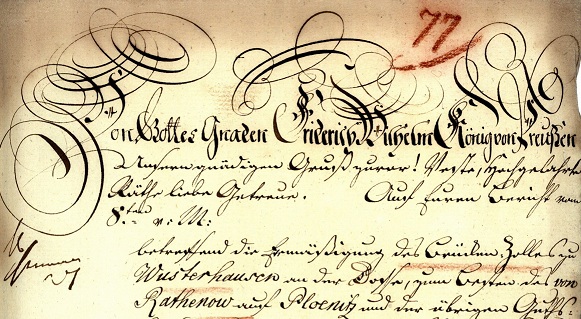 77
Von Gottes Gnaden Friderich Wilhelm König von Preußen
Unsern gnädigen Gruß zuvor! Veste, Hochgelahrte
Räthe liebe Getreue. Auf Euren Bericht vom
8.ten v: M:
betreffend die Ermäßigung des Brücken Zolles zu
Wusterhausen an der Dosse, zum Besten des von
Rathenow auf Ploenitz und der übrigen Guths-